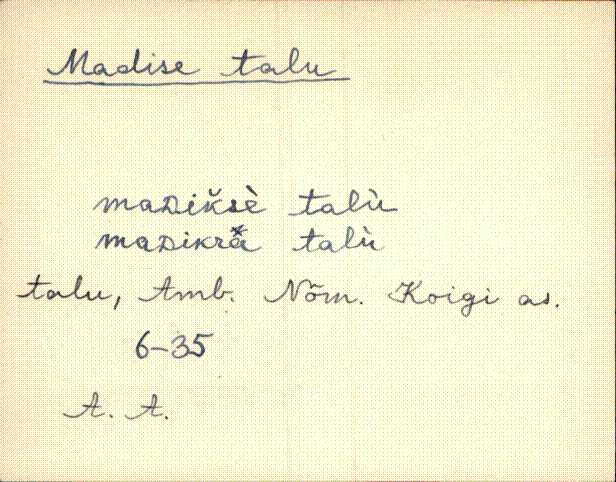 Madise talu
maᴅik̆sè talù
maᴅikrǎ talù
talu, Amb. Nõm. Koigi as.
6-35
A. A.